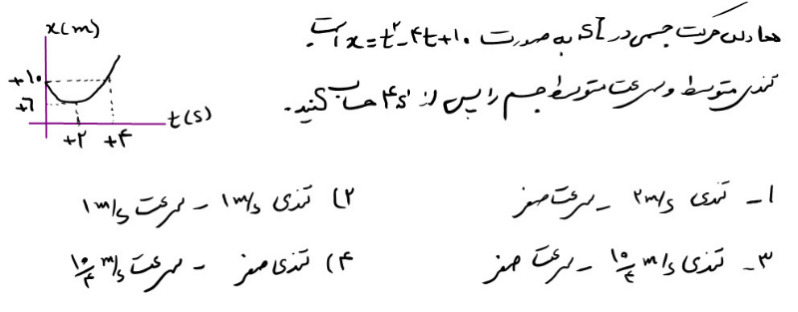 معادله حرکت جسمی در SI به صورت x=t²-۴t+۱۰ است
تندی متوسط و سرعت متوسط جسم را پس از ۴s حساب کنید.
x(m)
+۱۰
+۶
+۲
+۴
t(s)
۱- تندی ۲m/s - سرعت صفر
۲) تندی ۱m/s - سرعت ۱m/s
۳- تندی ۱۰/۴ m/s - سرعت صفر
۴) تندی صفر - سرعت ۱۰/۴ m/s